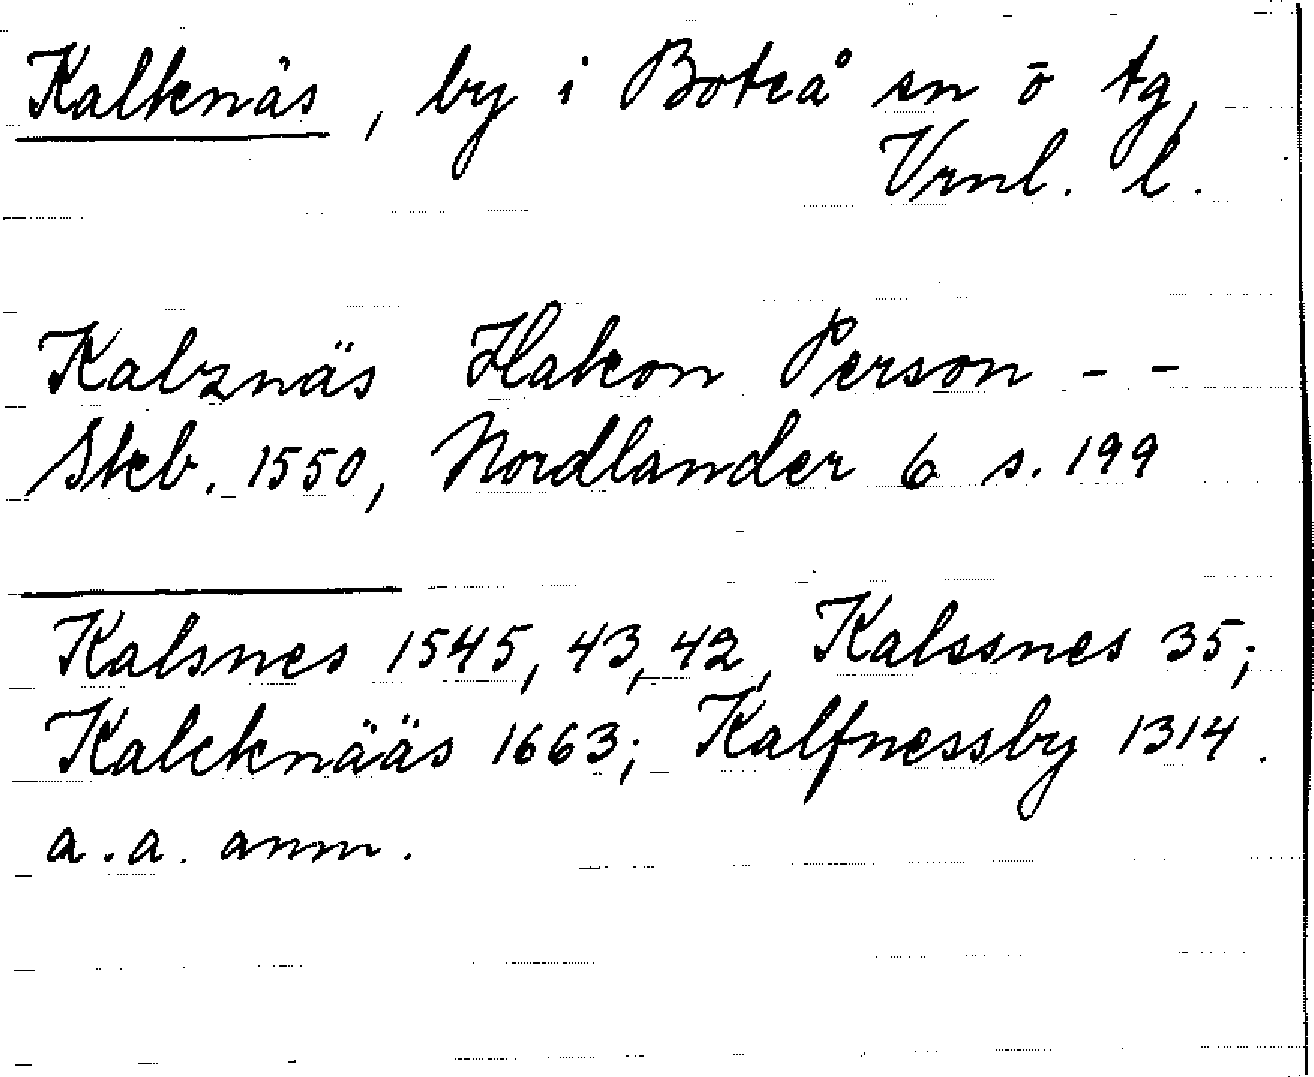 Kalknäs, by i Boteå sn ö tg,
Vrnl. l.
Kalznäs Hakon Person - -
Skb. 1550, Nordlander 6 s. 199
Kalsnes 1545, 43, 42, Kalssnes 35;
Kalcknääs 1663; Kalfnessby 1314.
a.a. anm.